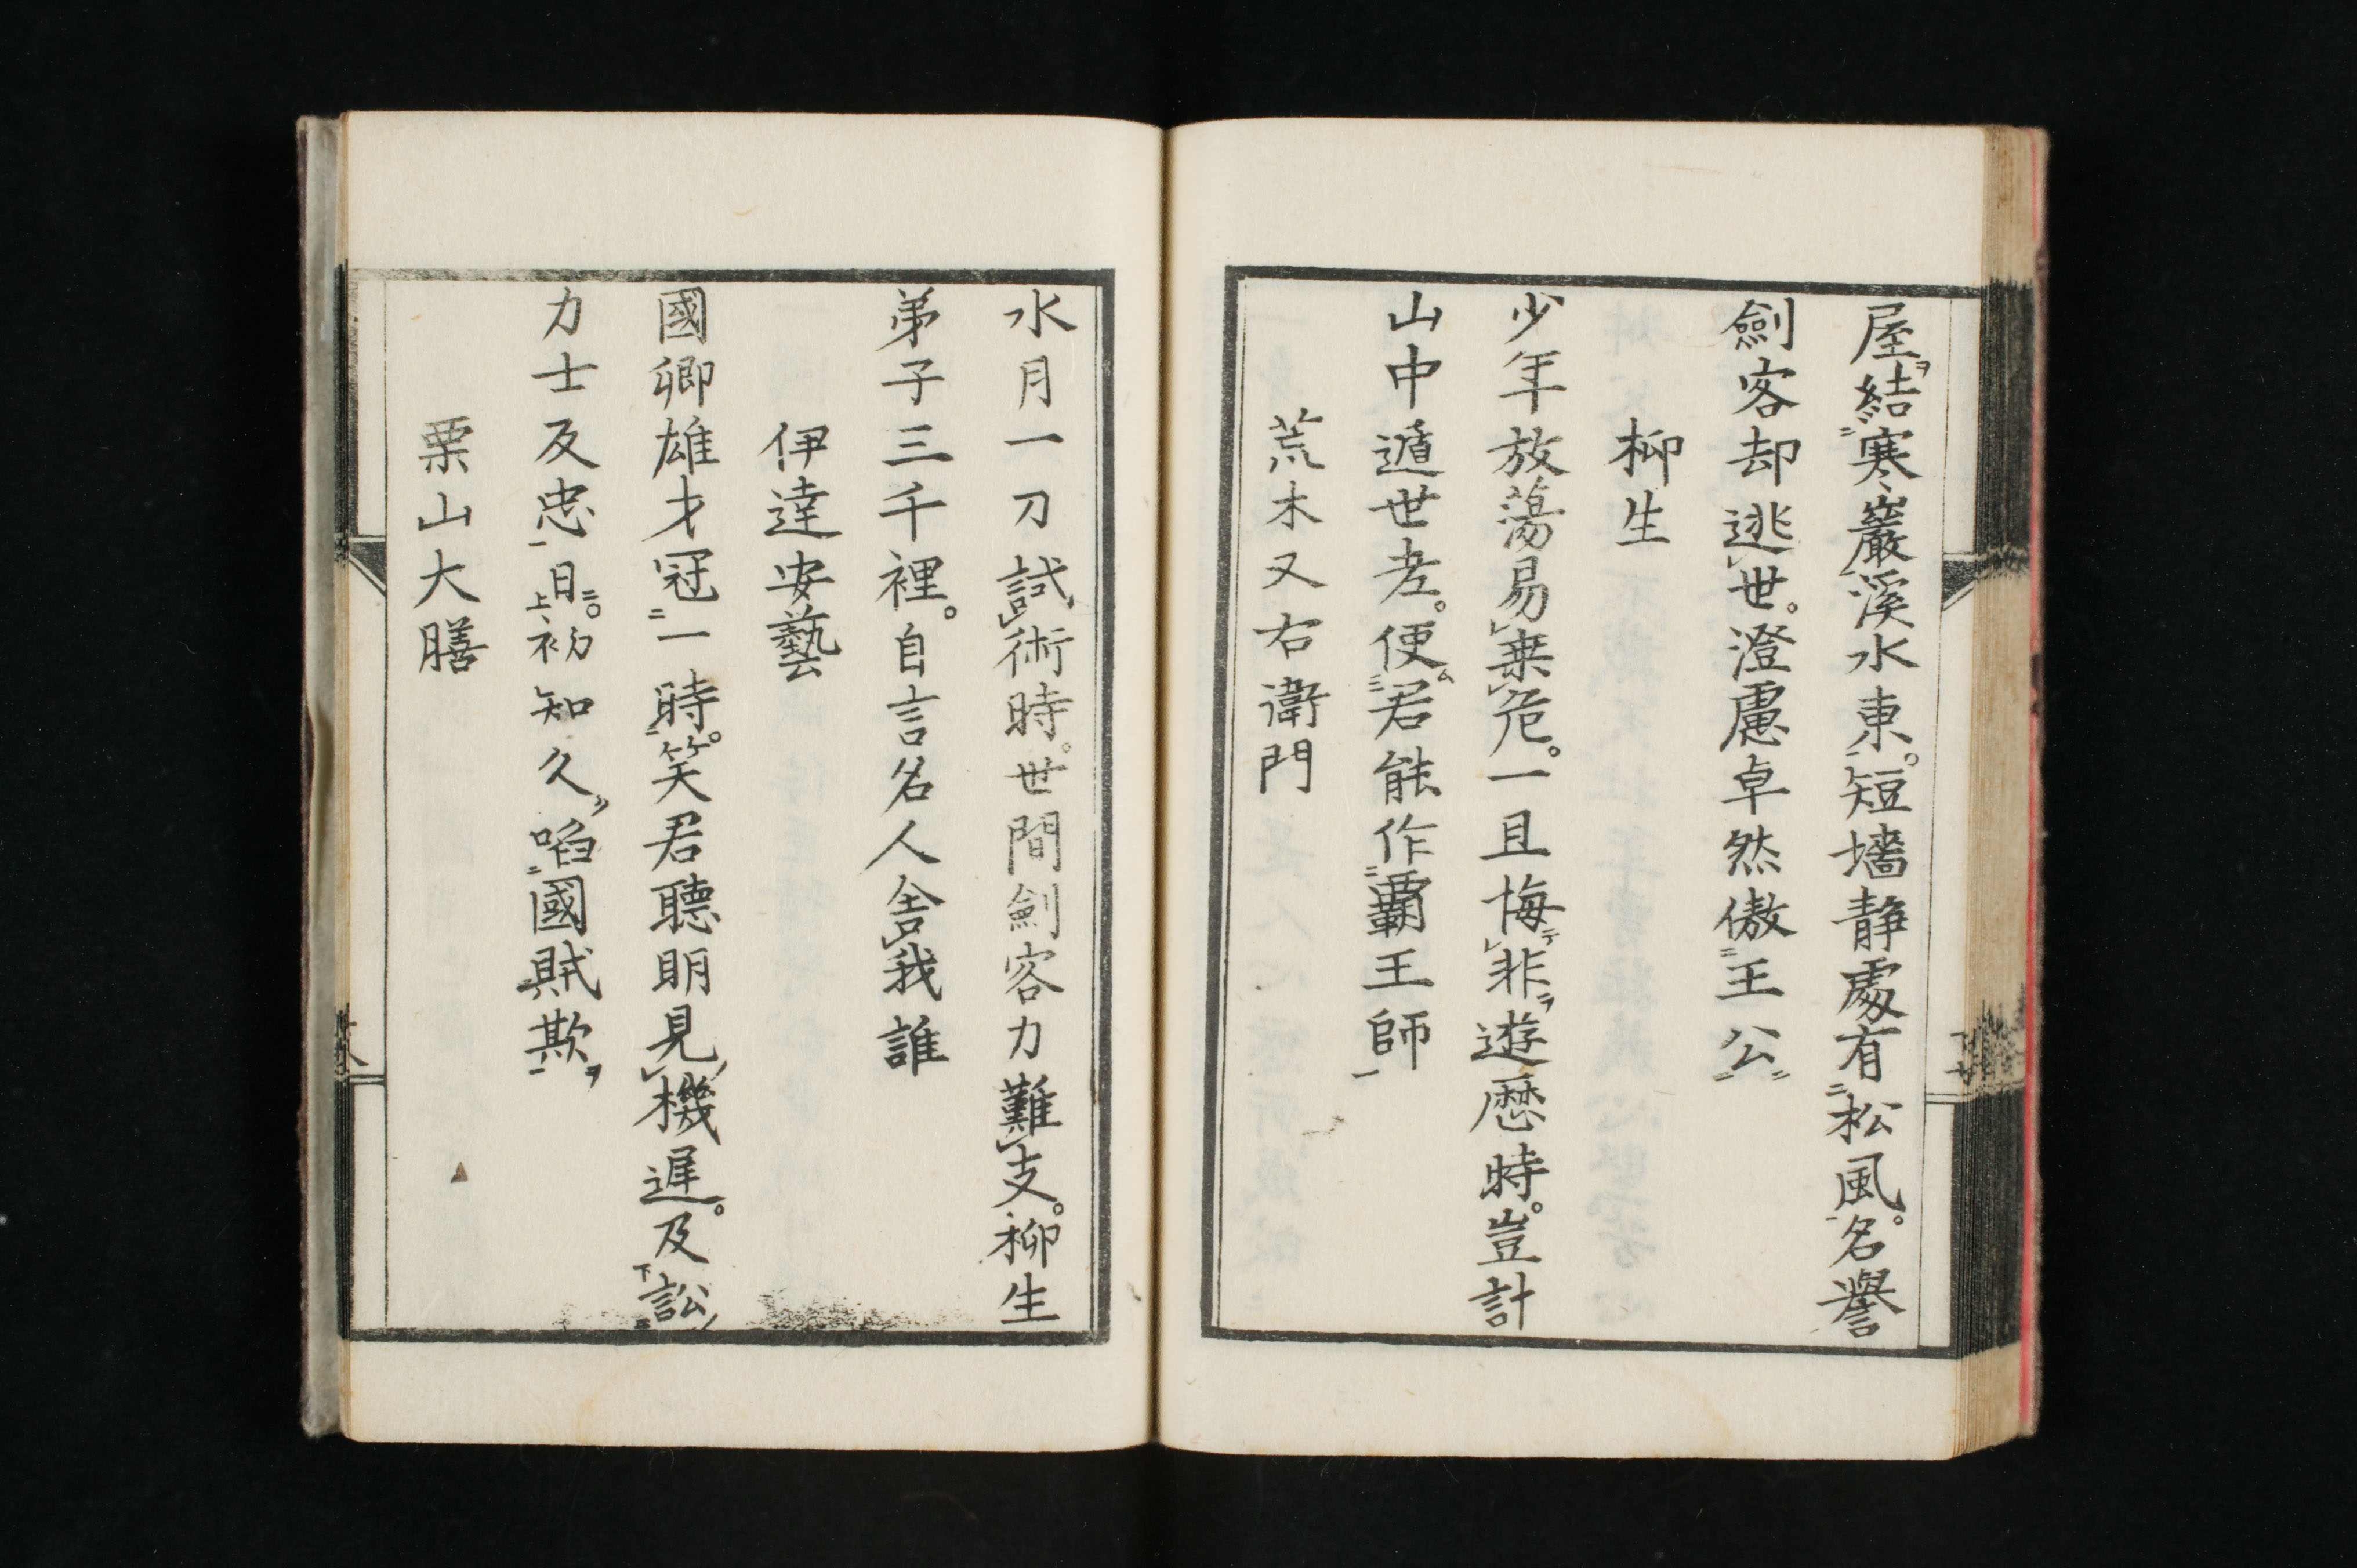 屋結寒巖溪水東。短墻静處有松風。名譽
劍客却逃世。澄慮卓然傲王公
柳生
少年放蕩易乗危。一旦悔非遊歷時。豈計
山中遁世老。便君能作覇王師
荒木又右衛門
水月一刀試術時。世間劍客力難支。柳生
弟子三千裡。自言名人舎我誰
伊達安藝
國卿雄才冠一時。笑君聰明見機遅。及訟
力士反忠日。初知久啗國賊欺
栗山大膳